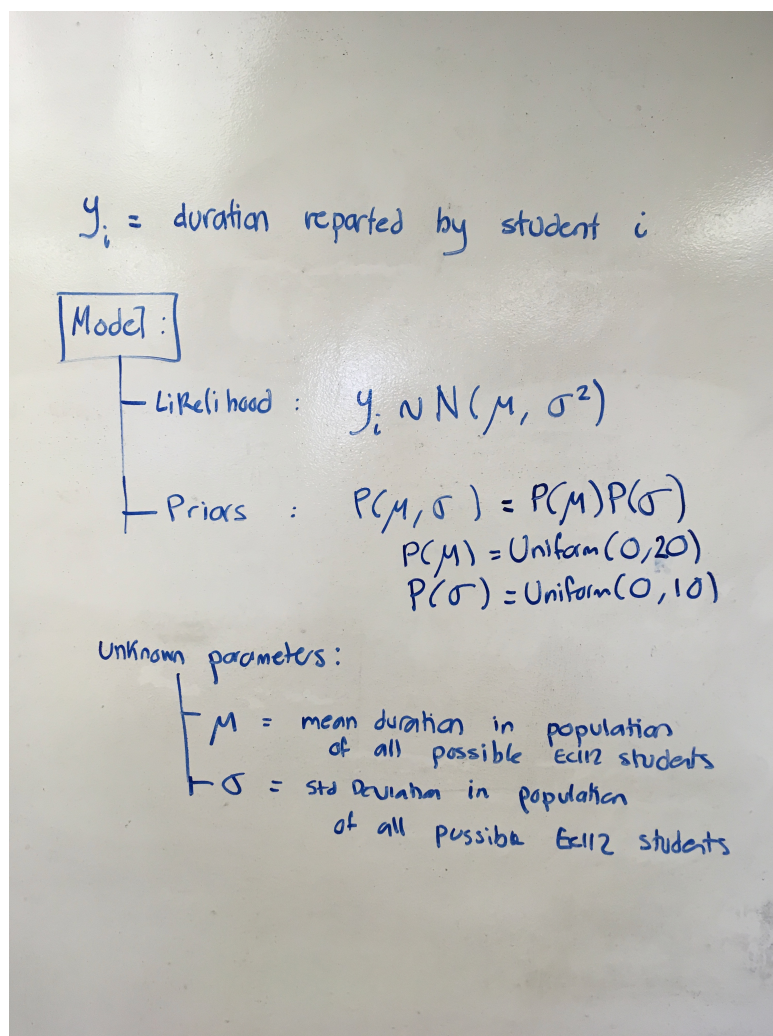 yᵢ = duration reported by student i
Model :
Likelihood : yᵢ ~ N(μ, σ²)
Priors : P(μ, σ) = P(μ)P(σ)
P(μ) = Uniform(0,20)
P(σ) = Uniform(0,10)
Unknown parameters:
μ = mean duration in population
of all possible Ec112 students
σ = Std Deviation in population
of all possible Ec112 students